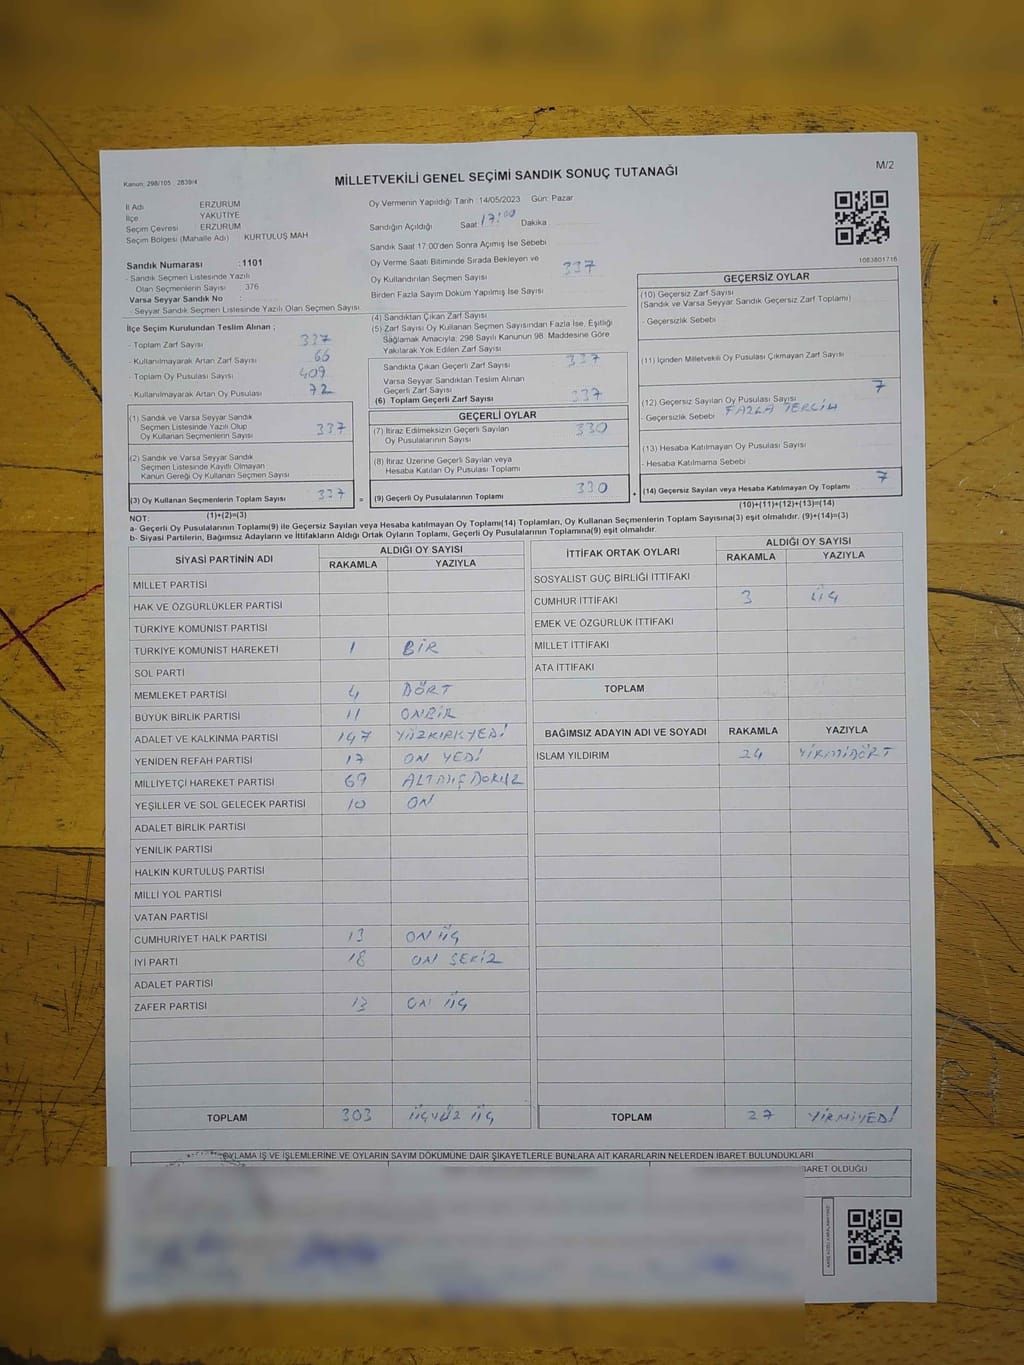 Kanun: 298/105 : 2839/4
MİLLETVEKİLİ GENEL SEÇİMİ SANDIK SONUÇ TUTANAĞI
M/2
İl Adı ERZURUM
İlçe YAKUTİYE
Seçim Çevresi ERZURUM
Seçim Bölgesi (Mahalle Adı) KURTULUŞ MAH
Oy Vermenin Yapıldığı Tarih :14/05/2023 Gün: Pazar
Sandığın Açıldığı Saat 17:00 Dakika
Sandık Saat 17:00'den Sonra Açımış İse Sebebi
Sandık Numarası :1101
- Sandık Seçmen Listesinde Yazılı
Olan Seçmenlerin Sayısı : 376
Varsa Seyyar Sandık No :
- Seyyar Sandık Seçmen Listesinde Yazılı Olan Seçmen Sayısı
Oy Verme Saati Bitiminde Sırada Bekleyen ve
Oy Kullandırılan Seçmen Sayısı 337
Birden Fazla Sayım Döküm Yapılmış İse Sayısı
1083801716
İlçe Seçim Kurulundan Teslim Alınan ;
- Toplam Zarf Sayısı 337
- Kullanılmayarak Artan Zarf Sayısı 66
- Toplam Oy Pusulası Sayısı 409
- Kullanılmayarak Artan Oy Pusulası 72
(1) Sandık ve Varsa Seyyar Sandık
Seçmen Listesinde Yazılı Olup
Oy Kullanan Seçmenlerin Sayısı 337
(2) Sandık ve Varsa Seyyar Sandık
Seçmen Listesinde Kayıtlı Olmayan
Kanun Gereği Oy Kullanan Seçmen Sayısı
(3) Oy Kullanan Seçmenlerin Toplam Sayısı 337 =
(1)+(2)=(3)
(4) Sandıktan Çıkan Zarf Sayısı
(5) Zarf Sayısı Oy Kullanan Seçmen Sayısından Fazla İse, Eşitliği
Sağlamak Amacıyla; 298 Sayılı Kanunun 98. Maddesine Göre
Yakılarak Yok Edilen Zarf Sayısı
Sandıkta Çıkan Geçerli Zarf Sayısı 337
Varsa Seyyar Sandıktan Teslim Alınan
Geçerli Zarf Sayısı
(6) Toplam Geçerli Zarf Sayısı 337
GEÇERLİ OYLAR
(7) İtiraz Edilmeksizin Geçerli Sayılan
Oy Pusulalarının Sayısı 330
(8) İtiraz Üzerine Geçerli Sayılan veya
Hesaba Katılan Oy Pusulası Toplamı
(9) Geçerli Oy Pusulalarının Toplamı 330 +
GEÇERSİZ OYLAR
(10) Geçersiz Zarf Sayısı
(Sandık ve Varsa Seyyar Sandık Geçersiz Zarf Toplamı)
- Geçersizlik Sebebi
(11) İçinden Milletvekili Oy Pusulası Çıkmayan Zarf Sayısı
(12) Geçersiz Sayılan Oy Pusulası Sayısı 7
- Geçersizlik Sebebi FAZLA TERCİH
(13) Hesaba Katılmayan Oy Pusulası Sayısı
- Hesaba Katılmama Sebebi
(14) Geçersiz Sayılan veya Hesaba Katılmayan Oy Pusulası Toplamı 7
(10)+(11)+(12)+(13)=(14)
NOT:
a- Geçerli Oy Pusulalarının Toplamı(9) ile Geçersiz Sayılan veya Hesaba katılmayan Oy Toplamı(14) Toplamları, Oy Kullanan Seçmenlerin Toplam Sayısına(3) eşit olmalıdır. (9)+(14)=(3)
b- Siyasi Partilerin, Bağımsız Adayların ve İttifakların Aldığı Ortak Oyların Toplamı, Geçerli Oy Pusulalarının Toplamına(9) eşit olmalıdır.
SİYASİ PARTİNİN ADI ALDIĞI OY SAYISI
RAKAMLA YAZIYLA
MİLLET PARTİSİ
HAK VE ÖZGÜRLÜKLER PARTİSİ
TÜRKİYE KOMÜNİST PARTİSİ
TÜRKİYE KOMÜNİST HAREKETİ 1 BİR
SOL PARTİ
MEMLEKET PARTİSİ 4 DÖRT
BÜYÜK BİRLİK PARTİSİ 11 ONBİR
ADALET VE KALKINMA PARTİSİ 147 YÜZKIRKYEDİ
YENİDEN REFAH PARTİSİ 17 ON YEDİ
MİLLİYETÇİ HAREKET PARTİSİ 69 ALTMIŞDOKUZ
YEŞİLLER VE SOL GELECEK PARTİSİ 10 ON
ADALET BİRLİK PARTİSİ
YENİLİK PARTİSİ
HALKIN KURTULUŞ PARTİSİ
MİLLİ YOL PARTİSİ
VATAN PARTİSİ
CUMHURİYET HALK PARTİSİ 13 ON ÜÇ
İYİ PARTİ 18 ON SEKİZ
ADALET PARTİSİ
ZAFER PARTİSİ 13 ON ÜÇ
TOPLAM 303 ÜÇYÜZ ÜÇ
İTTİFAK ORTAK OYLARI ALDIĞI OY SAYISI
RAKAMLA YAZIYLA
SOSYALİST GÜÇ BİRLİĞİ İTTİFAKI
CUMHUR İTTİFAKI 3 ÜÇ
EMEK VE ÖZGÜRLÜK İTTİFAKI
MİLLET İTTİFAKI
ATA İTTİFAKI
TOPLAM
BAĞIMSIZ ADAYIN ADI VE SOYADI RAKAMLA YAZIYLA
İSLAM YILDIRIM 24 YİRMİDÖRT
TOPLAM 27 YİRMİYEDİ
OYLAMA İŞ VE İŞLEMLERİNE VE OYLARIN SAYIM DÖKÜMÜNE DAİR ŞİKAYETLERLE BUNLARA AİT KARARLARIN NELERDEN İBARET BULUNDUKLARI
İBARET OLDUĞU